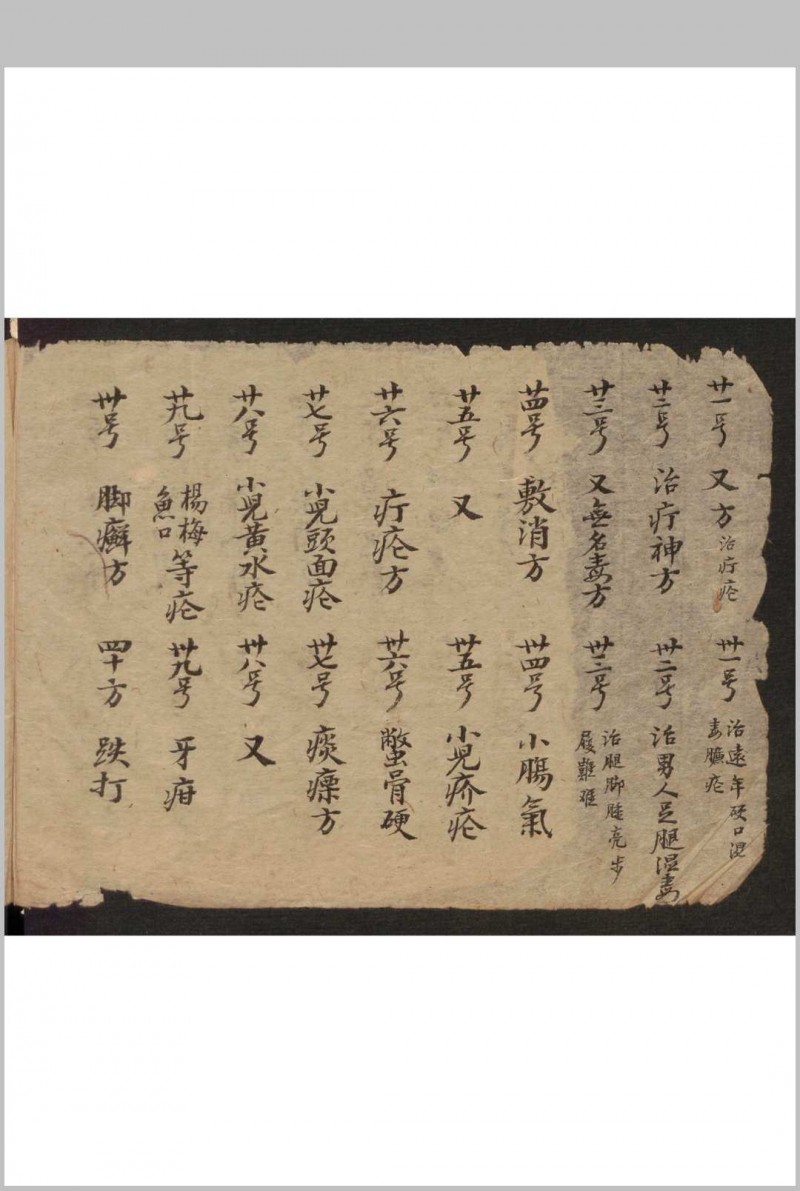 廿一号 又方 治疔疮
廿二号 治疔神方
廿三号 又無名毒方
廿四号 敷消方
廿五号 又
廿六号 疔疮方
廿七号 小兒頭面疮
廿八号 小兒黄水疮
廿九号 楊梅魚口等疮
卅号 脚癬方
卅一号 治遠年硬口湿毒臁疮
卅二号 治男人足腿湿毒
卅三号 治腿脚腫亮步履難
卅四号 小腸氣
卅五号 小兒疥疮
卅六号 鱉骨硬
卅七号 痰瘰方
卅八号 又
卅九号 牙疳
四十方 跌打